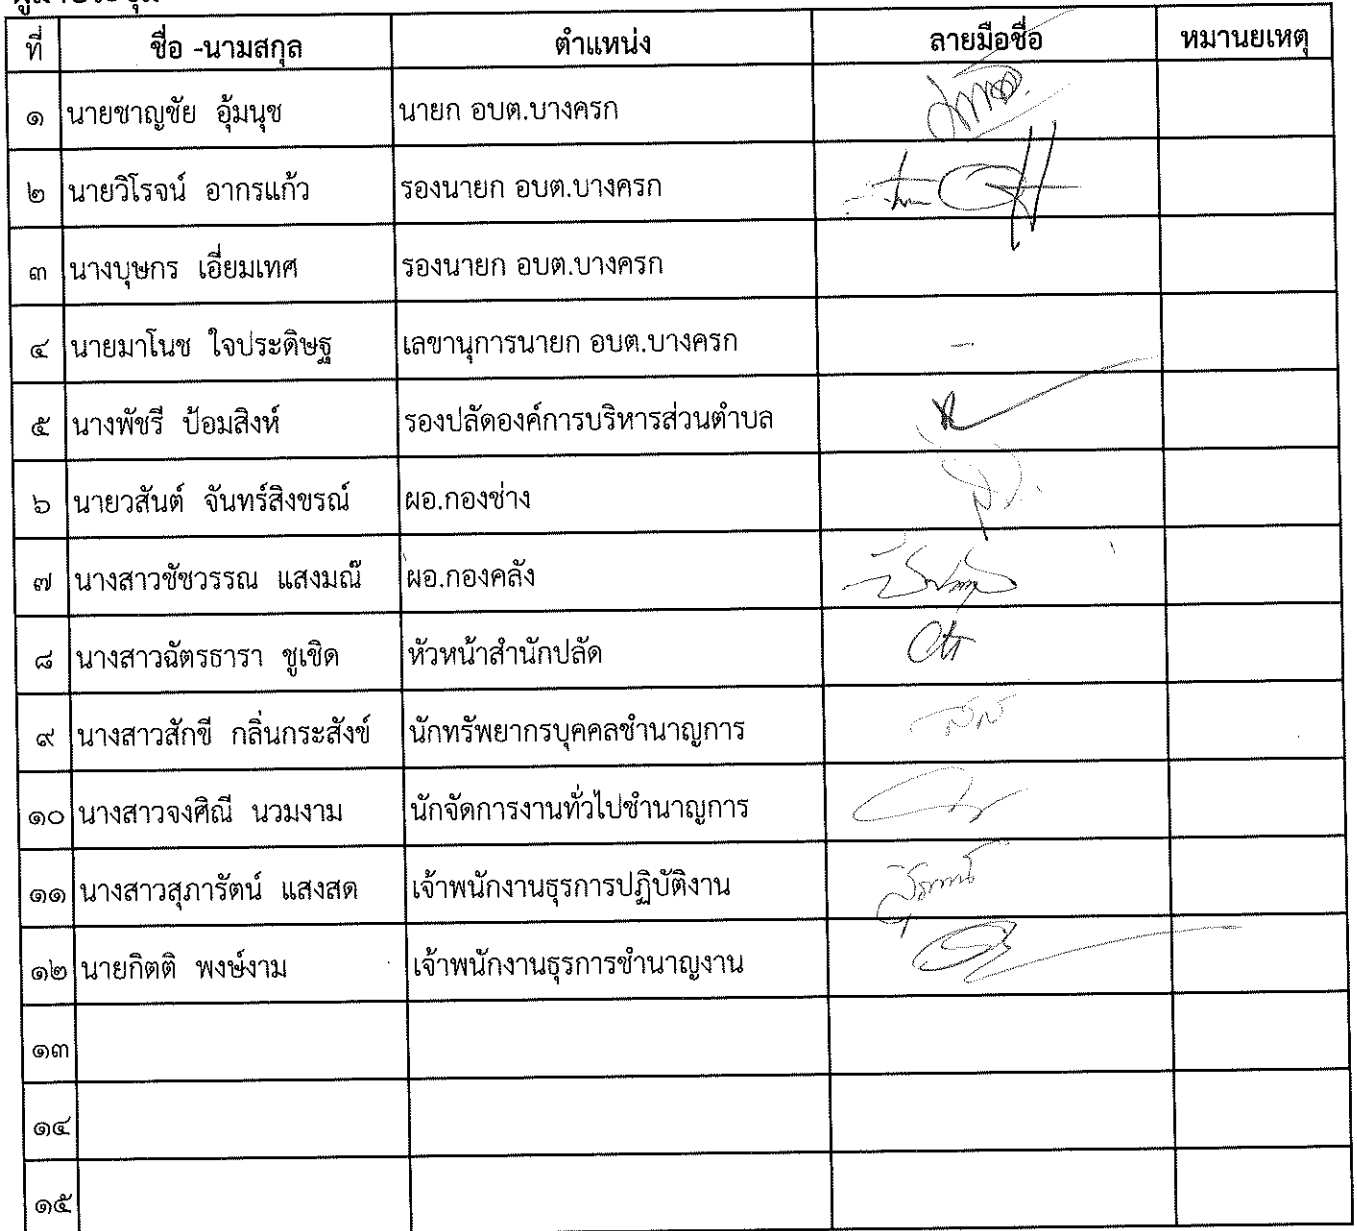 ที่ ชื่อ -นามสกุล ตำแหน่ง ลายมือชื่อ หมานยเหตุ
๑ นายชาญชัย อุ้มนุช นายก อบต.บางครก
๒ นายวิโรจน์ อากรแก้ว รองนายก อบต.บางครก
๓ นางบุษกร เอี่ยมเทศ รองนายก อบต.บางครก
๔ นายมาโนช ใจประดิษฐ เลขานุการนายก อบต.บางครก -
๕ นางพัชรี ป้อมสิงห์ รองปลัดองค์การบริหารส่วนตำบล
๖ นายวสันต์ จันทร์สิงขรณ์ ผอ.กองช่าง
๗ นางสาวชัชวรรณ แสงมณ๊ ผอ.กองคลัง
๘ นางสาวฉัตรธารา ชูเชิด หัวหน้าสำนักปลัด
๙ นางสาวสักขี กลิ่นกระสังข์ นักทรัพยากรบุคคลชำนาญการ
๑๐ นางสาวจงศิณี นวมงาม นักจัดการงานทั่วไปชำนาญการ
๑๑ นางสาวสุภารัตน์ แสงสด เจ้าพนักงานธุรการปฏิบัติงาน
๑๒ นายกิตติ พงษ์งาม เจ้าพนักงานธุรการชำนาญงาน
๑๓
๑๔
๑๕